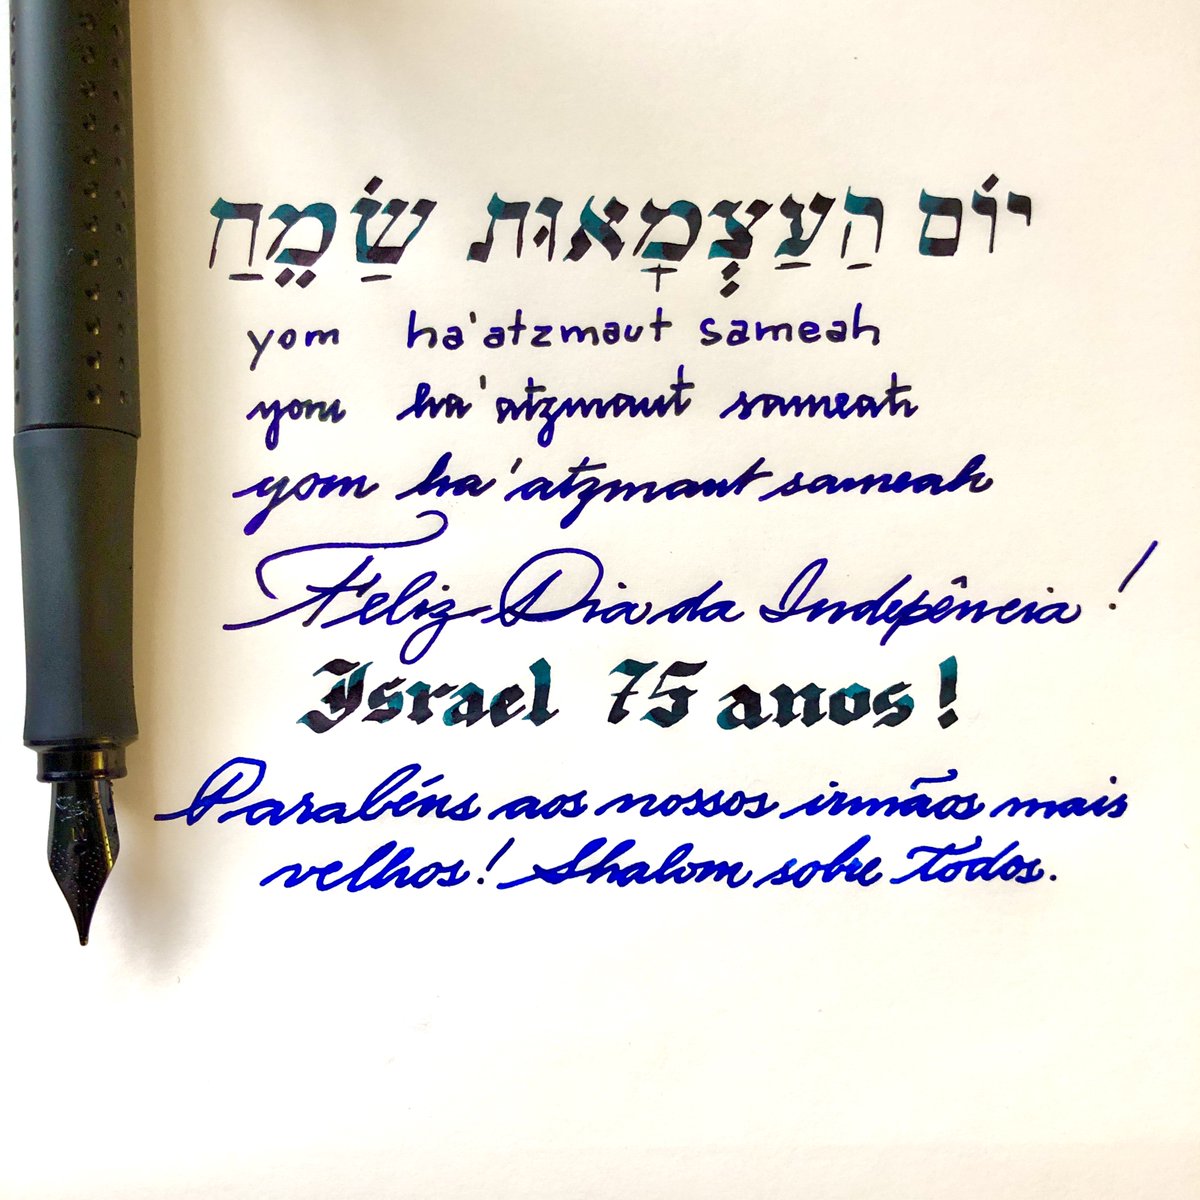 יוֹם הַעַצְמָאוּת שָׂמֵחַ
yom ha'atzmaut sameah
yom ha'atzmaut sameah
yom ha'atzmaut sameah
Feliz Dia da Indepência!
Israel 75 anos!
Parabéns aos nossos irmãos mais
velhos! Shalom sobre todos.